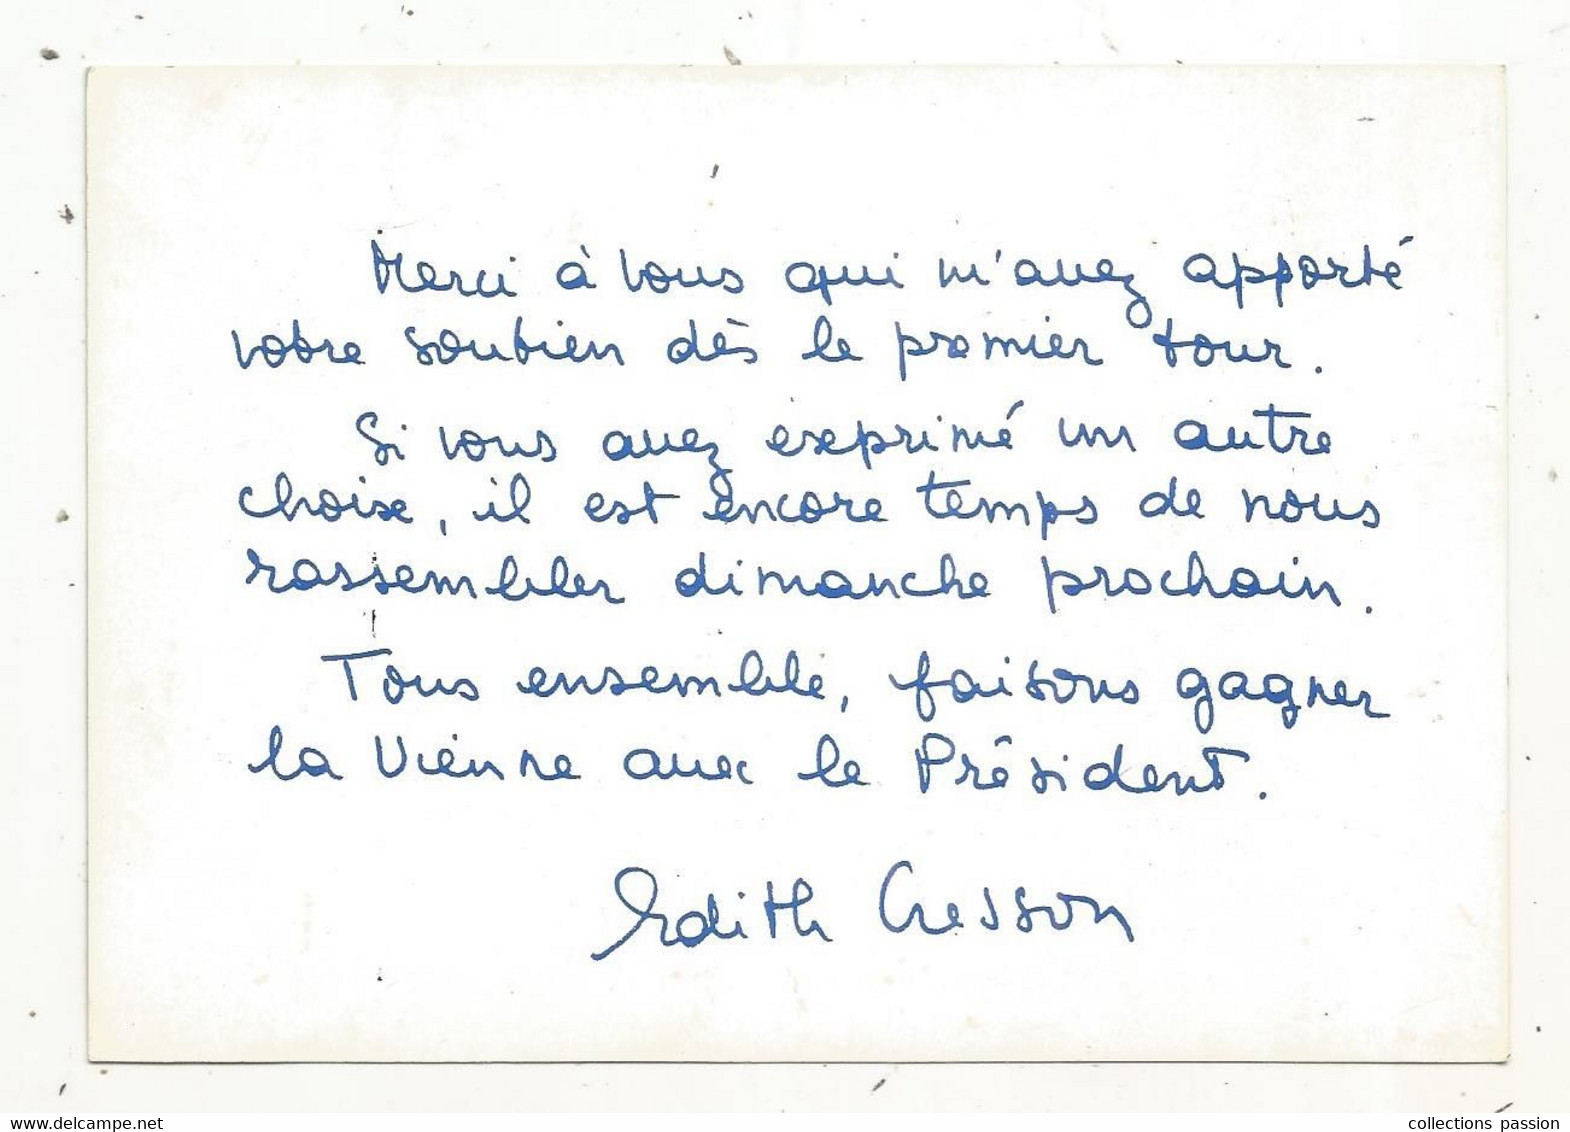 Merci à vous qui m'avez apporté
votre soutien dès le premier tour.
Si vous avez exprimé un autre
choix, il est encore temps de nous
rassembler dimanche prochain.
Tous ensemble, faisons gagner
la Vienne avec le Président.
Edith Cresson
www.delcampe.net
collections passion